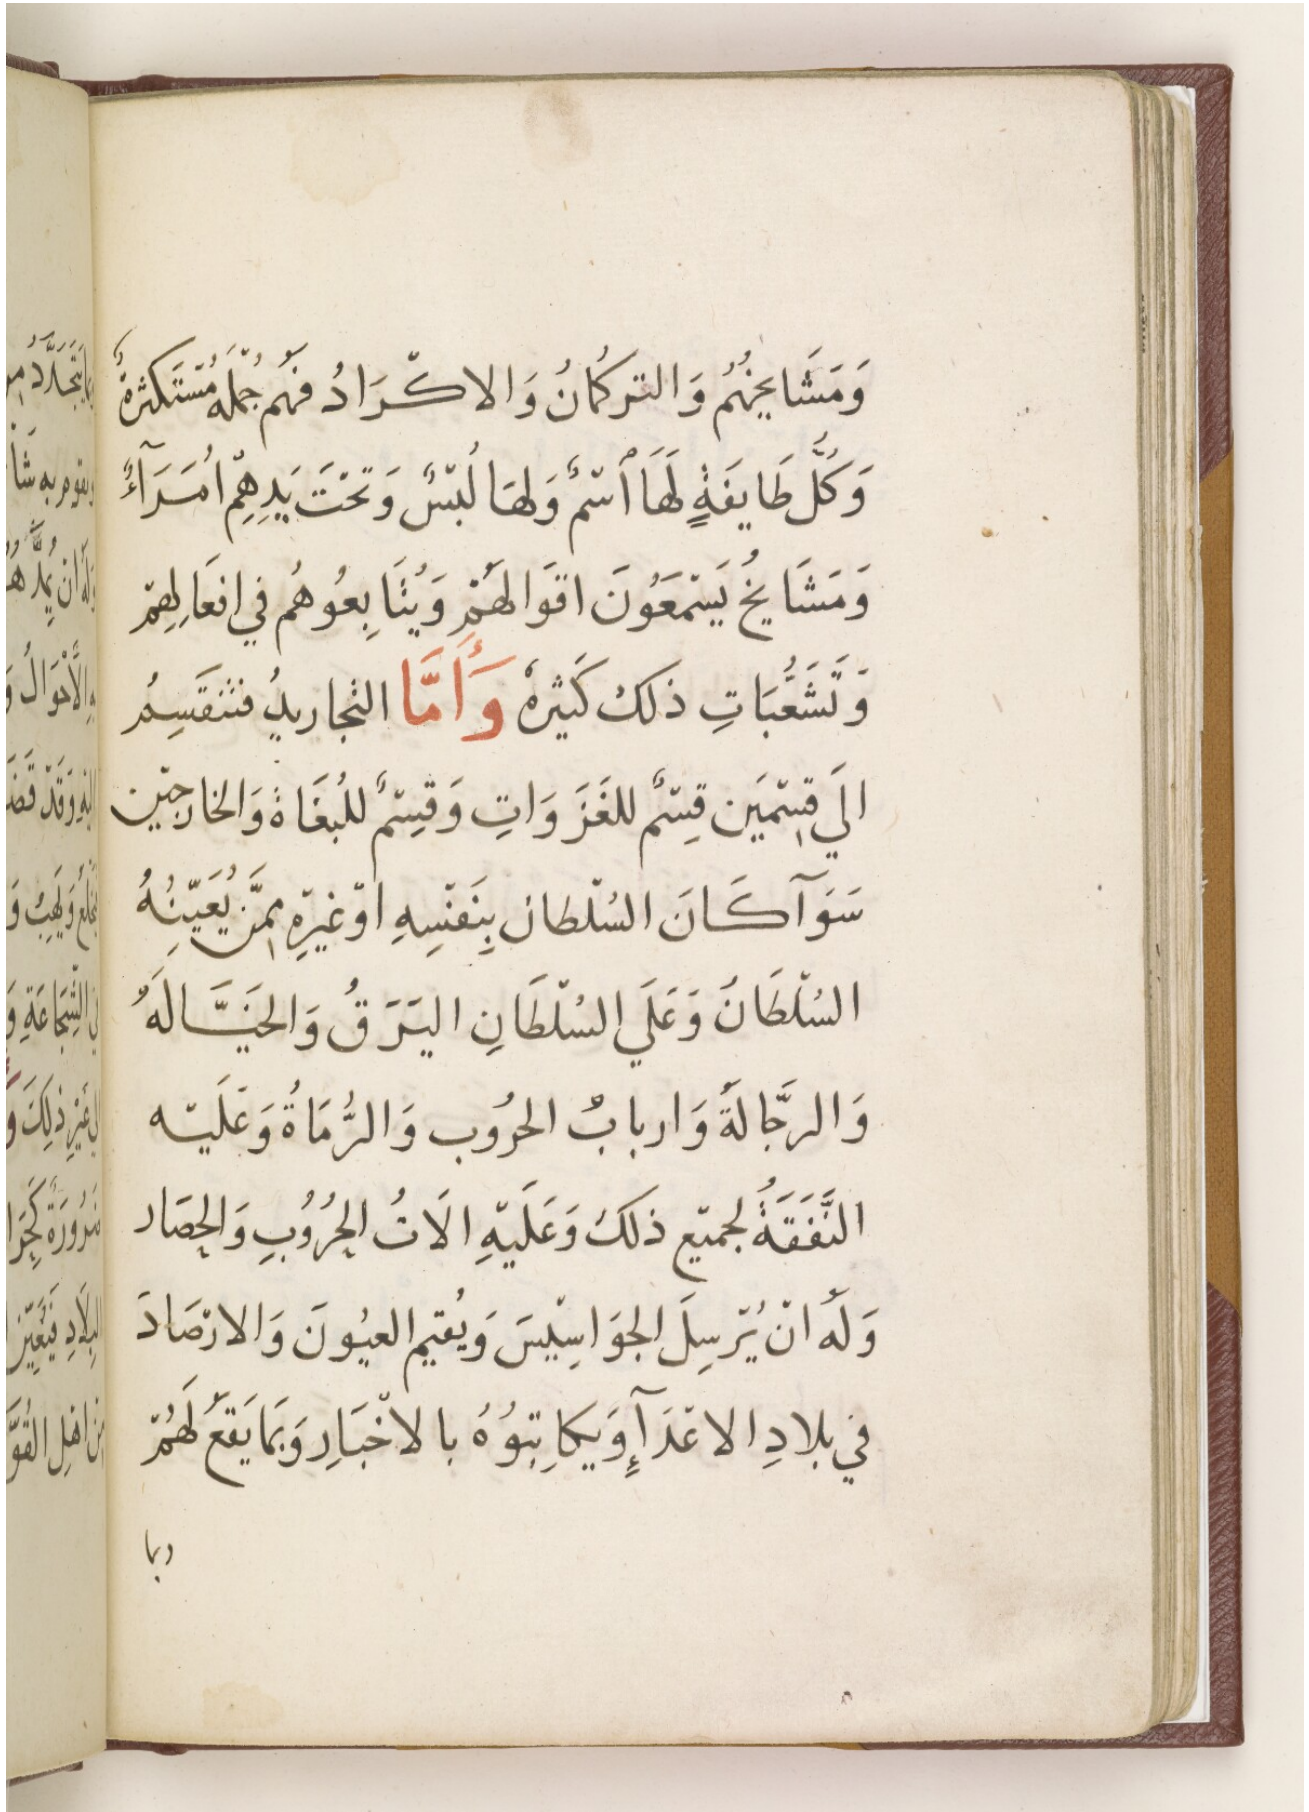 وَمَشَايخهُمُ وَالتركُمَانُ وَالاكْرَادُ فهُم جُملَةٌ مُسْتَكثرةٌ
وَكُلُّ طَايفَةٍ لَهَا ٱسْمٌ وَلهَا لُبْسٌ وَتحْتَ يَدِهِمْ امُرَآءٌ
وَمَشَايخُ يَسْمَعَوُنَ اقوَالهُمْ وَيُتَابِعوُهُم في افعَالِهِمْ
وَتَشَعُّبَاتِ ذلكَ كَثيرهٌ وَأَمَّا التجاريدُ فتنقَسِمُ
الَي قِسْمَين قِسْمٌ للغَزَوَاتِ وَقسِمٌ للُبغَاةْ وَالخارجيّن
سَوَآ كَانَ السُلْطان بِنَفسِهِ اوْ غيَرِهِ ممَّن يُعَيّنُهُ
السُلْطَانُ وَعَلَي السُلْطَانِ اليَرَقُ وَالخَيَّالَهُ
وَالرجَّالةُ وَاربابُ الحرُوب وَالرُّمَاةُ وَعَلَيْه
النَّفَقَةُ لجميْع ذلكَ وَعَلَيْهِ الَاتُ الحرُوُبِ وَالحِصَار
وَلَهُ انْ يُرْسِلَ الجوَاسِيْسَ وَيُقيم العيُونَ وَالارْصَادَ
في بلادِ الاعْدَآءِ وَيكاتِبَوُهُ بالاخْبَارِ وَبمَا يَقعَ لَهُمْ
وبما